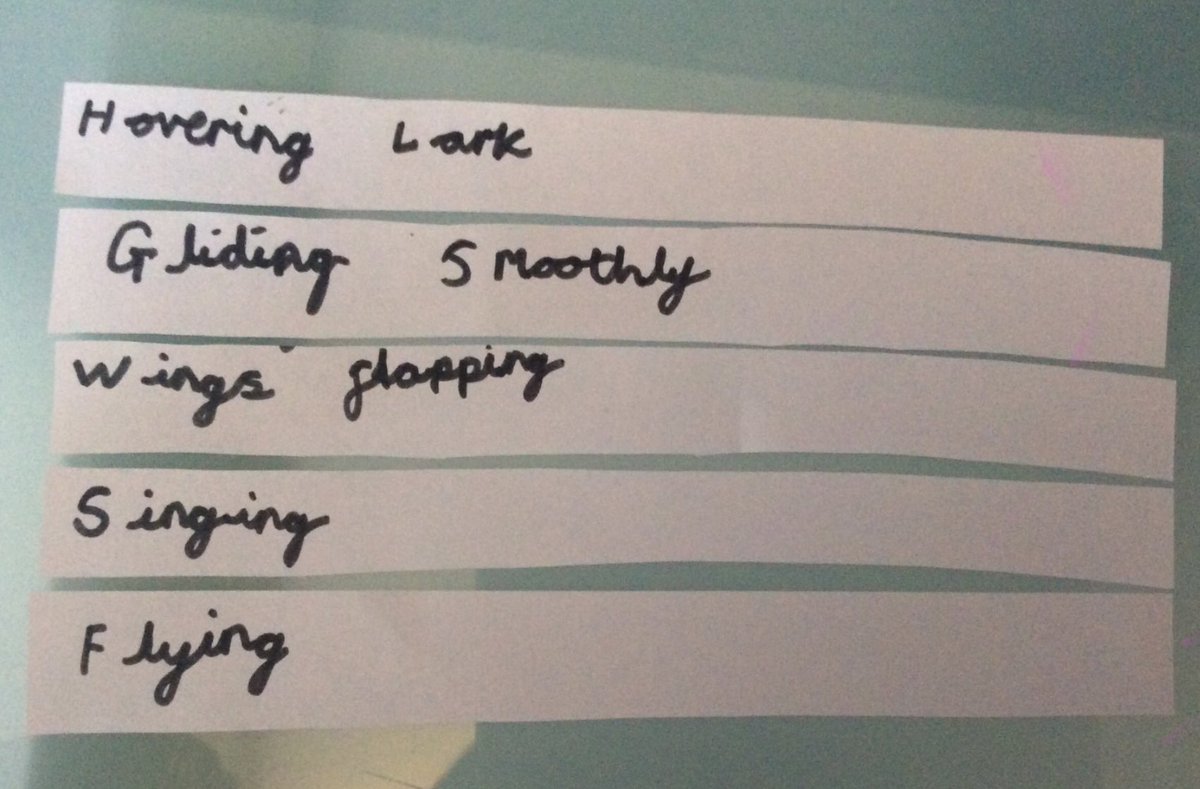 Hovering Lark
Gliding Smoothly
Wings flapping
Singing
Flying